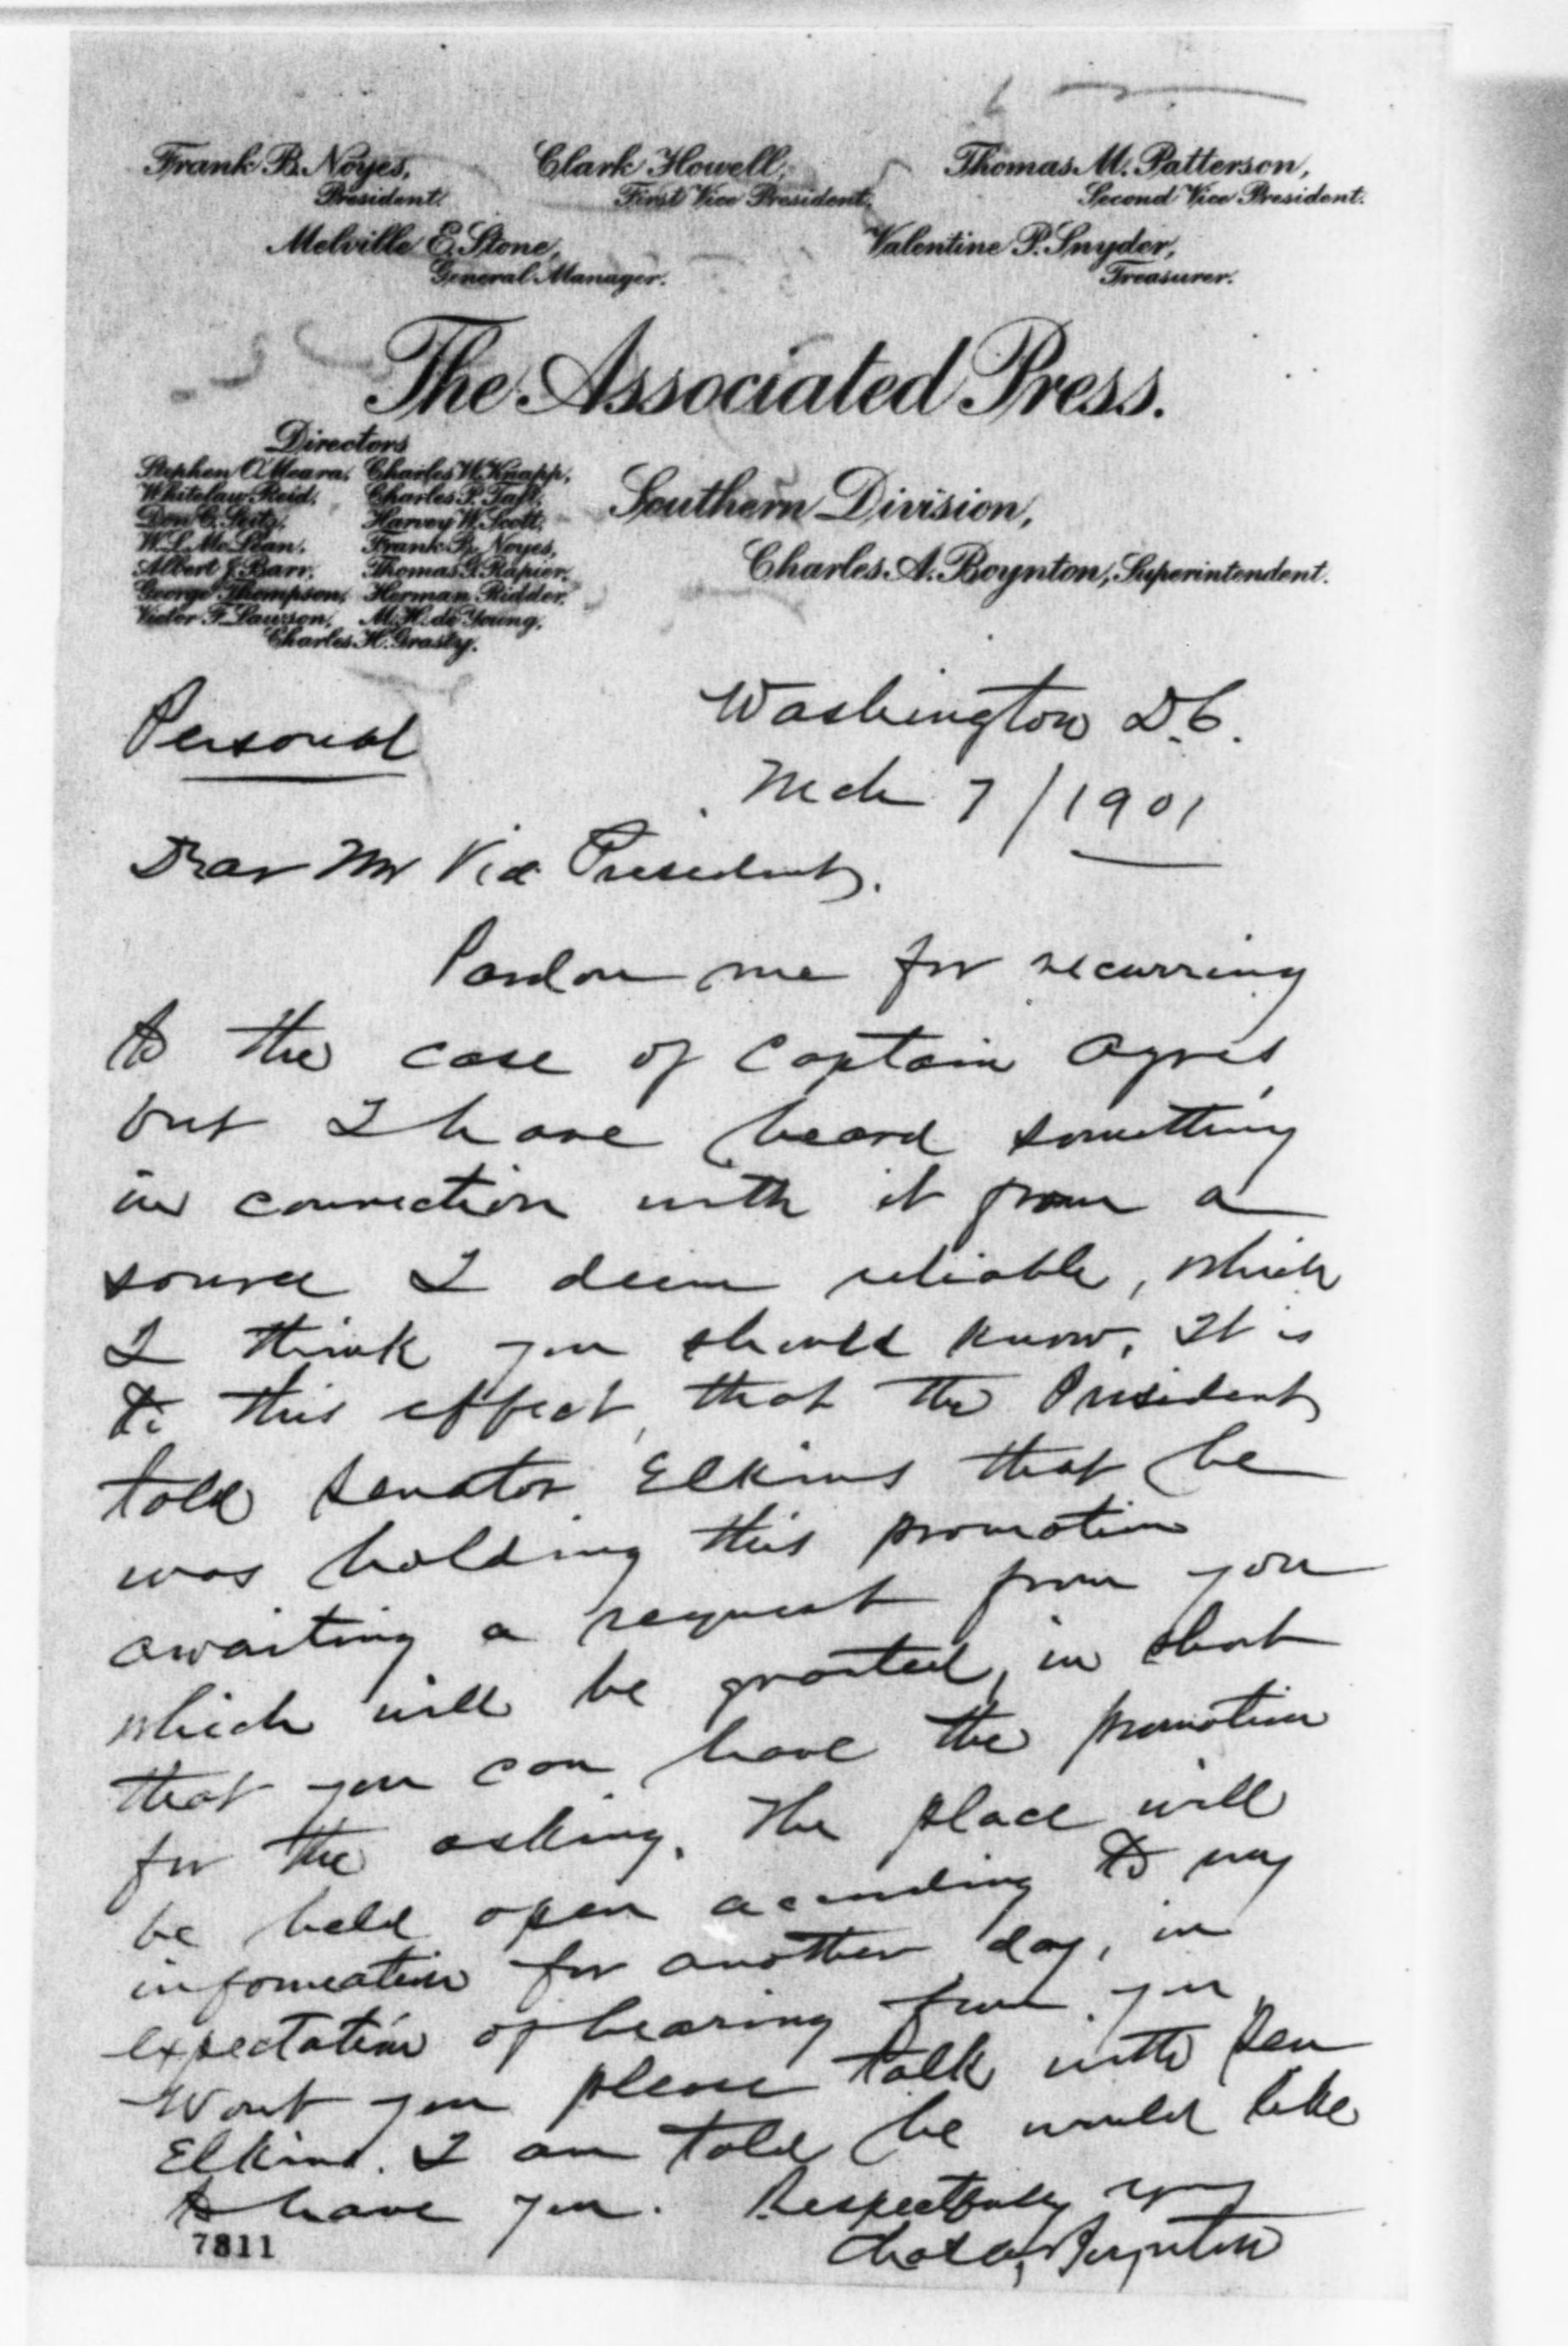 Frank B. Noyes, Clark Howell, Thomas M. Patterson,
President. First Vice President. Second Vice President.
Melville E. Stone, Valentine P. Snyder,
General Manager. Treasurer.
The Associated Press.
Directors
Stephen O'Meara, Charles W. Knapp,
Whitelaw Reid, Charles P. Taft,
Don C. Seitz, Harvey W. Scott,
W. L. McLean, Frank B. Noyes,
Albert J. Barr, Thomas G. Rapier,
George Thompson, Herman Ridder,
Victor F. Lawson, M. H. de Young,
Charles H. Grasty.
Southern Division,
Charles A. Boynton, Superintendent.
Personal
Washington D.C.
Mch 7/1901
Dear Mr Vice President,
Pardon me for recurring
to the case of Captain Ayres,
but I have heard something
in connection with it from a
source I deem reliable, which
I think you should know. It is
to this effect, that the President
told Senator Elkins that he
was holding this promotion
awaiting a request from you
which will be granted, in short
that you can have the promotion
for the asking. The place will
be held open according to my
information for another day, in
expectation of hearing from you.
Wont you please talk with Sen
Elkins. I am told he would like
to have you. Respectfully yours
Chas A. Boynton
7811